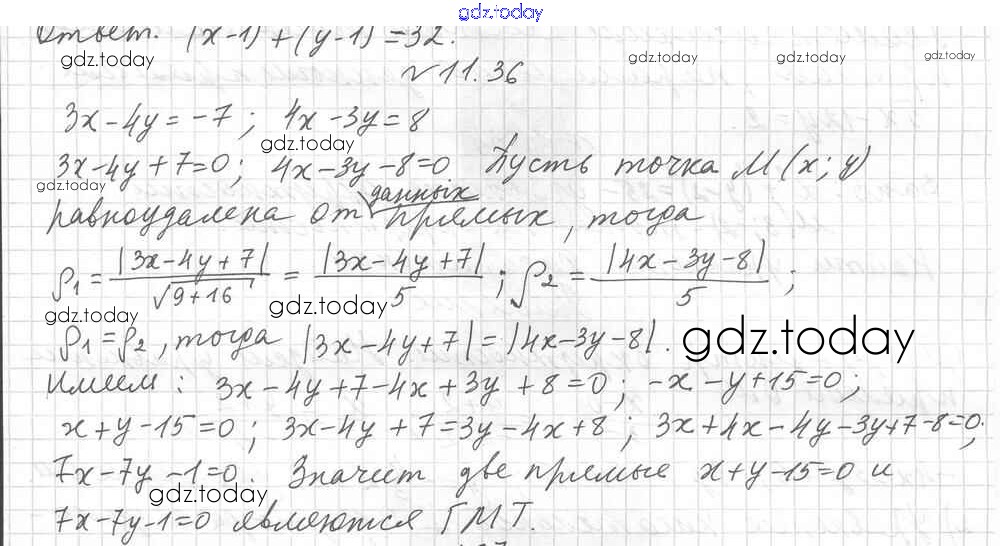 gdz.today
Ответ. (x-1)+(y-1)=32.
gdz.today gdz.today gdz.today gdz.today
№11.36
3x-4y=-7; 4x-3y=8
gdz.today
3x-4y+7=0; 4x-3y-8=0 Пусть точка M(x; y)
gdz.today
данных
равноудалена от прямых, тогда
ρ₁ = |3x-4y+7| / √(9+16) = |3x-4y+7| / 5 ; ρ₂ = |4x-3y-8| / 5 ;
gdz.today gdz.today
ρ₁=ρ₂, тогда |3x-4y+7|=|4x-3y-8|. gdz.today
Имеем: 3x-4y+7-4x+3y+8=0; -x-y+15=0;
x+y-15=0; 3x-4y+7=3y-4x+8; 3x+4x-4y-3y+7-8=0;
7x-7y-1=0. Значит две прямые x+y-15=0 и
gdz.today
7x-7y-1=0 являются ГМТ.